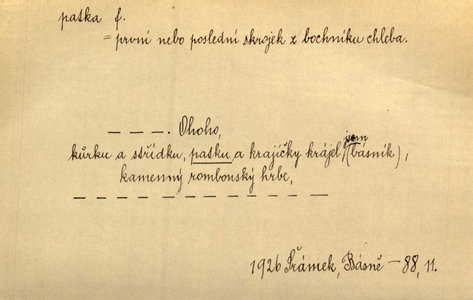 patka f.
= první nebo poslední skrojek z bochníku chleba.
– – – . Ohoho,
kůrku a střídku, patku a krajíčky krájel jsem (básník),
kamenný rombonský hrbe,
– – – – – – – – – –
1926 Šrámek, Básně – 88, 11.